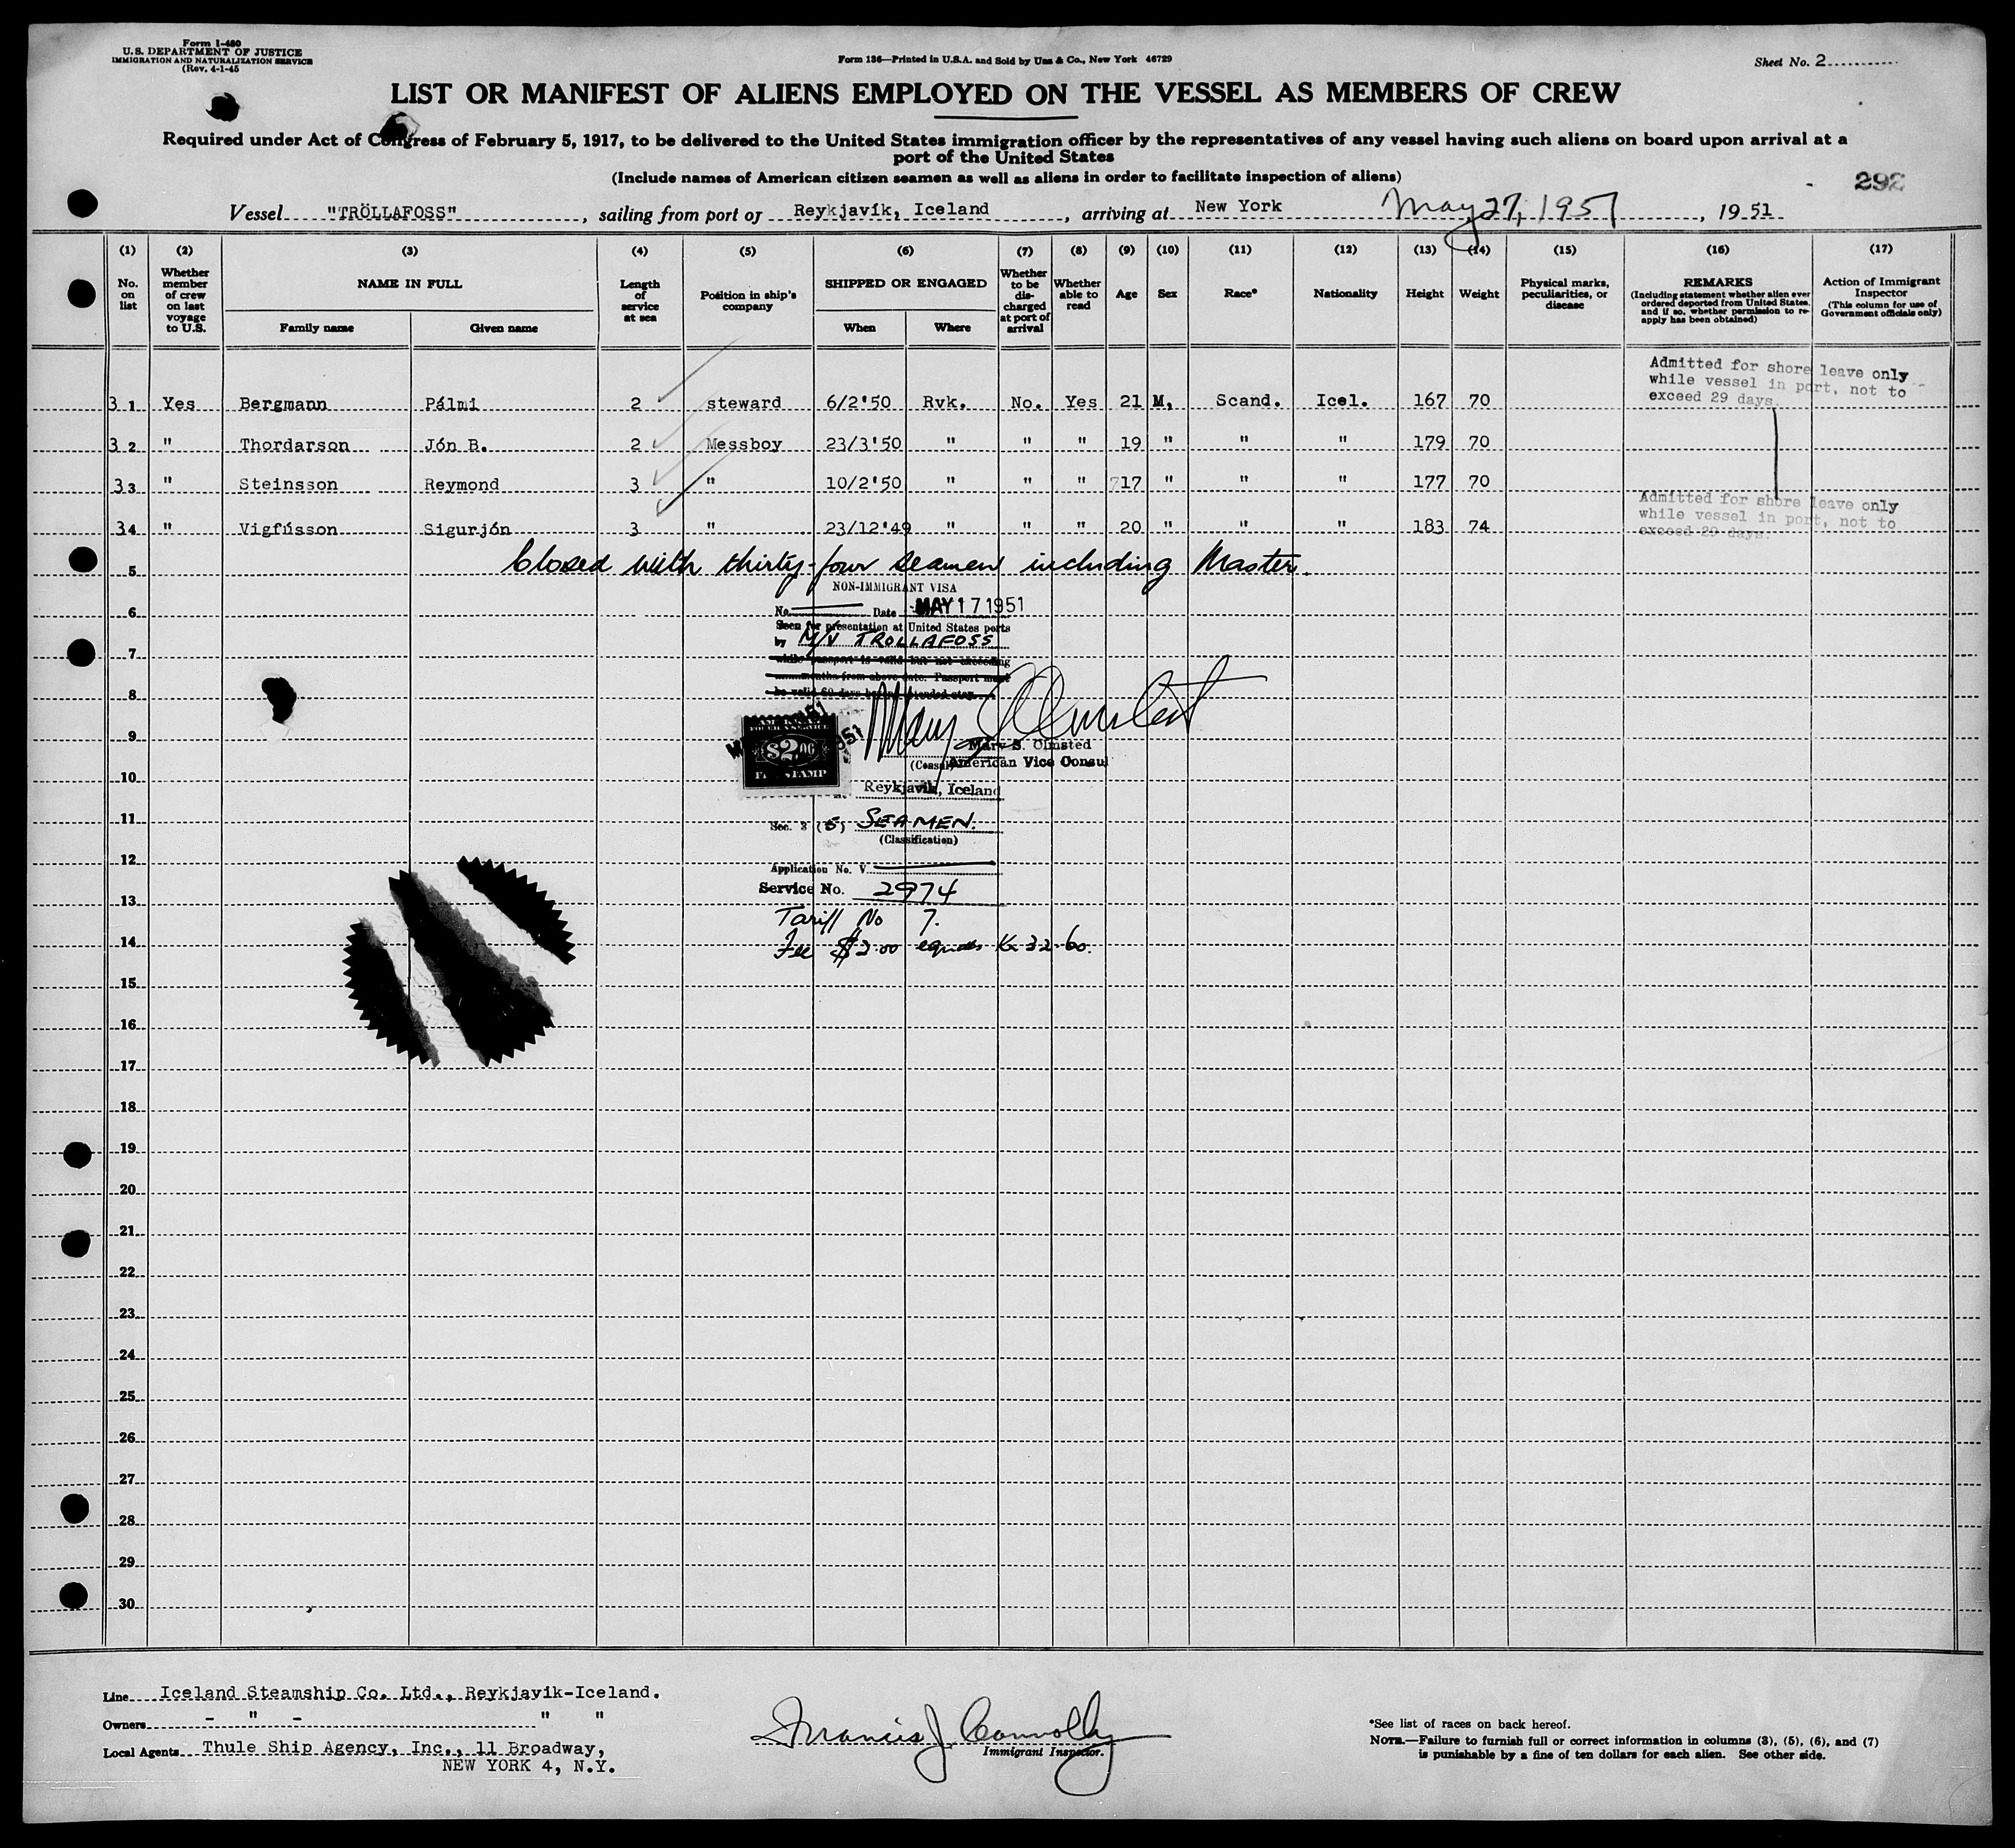 Form I-480
U.S. DEPARTMENT OF JUSTICE
IMMIGRATION AND NATURALIZATION SERVICE
(Rev. 4-1-45
Form 136—Printed in U.S.A. and Sold by Unz & Co., New York 46729
Sheet No. 2
LIST OR MANIFEST OF ALIENS EMPLOYED ON THE VESSEL AS MEMBERS OF CREW
Required under Act of Congress of February 5, 1917, to be delivered to the United States immigration officer by the representatives of any vessel having such aliens on board upon arrival at a
port of the United States
(Include names of American citizen seamen as well as aliens in order to facilitate inspection of aliens)
292
Vessel "TRÖLLAFOSS", sailing from port of Reykjavík, Iceland, arriving at New York May 27, 1951, 19 51
(1) (2) (3) (4) (5) (6) (7) (8) (9) (10) (11) (12) (13) (14) (15) (16) (17)
No. on list
Whether member of crew on last voyage to U.S.
NAME IN FULL
Family name
Given name
Length of service at sea
Position in ship's company
SHIPPED OR ENGAGED
When
Where
Whether to be discharged at port of arrival
Whether able to read
Age
Sex
Race*
Nationality
Height
Weight
Physical marks, peculiarities, or disease
REMARKS
(Including statement whether alien ever ordered deported from United States, and if so, whether permission to reapply has been obtained)
Action of Immigrant Inspector
(This column for use of Government officials only)
Admitted for shore leave only
while vessel in port, not to
exceed 29 days.
31 Yes Bergmann Pálmi 2 steward 6/2'50 Rvk. No. Yes 21 M, Scand. Icel. 167 70
32 " Thordarson Jón B. 2 Messboy 23/3'50 " " " 19 " " " 179 70
33 " Steinsson Reymond 3 " 10/2'50 " " " 17 " " " 177 70
Admitted for shore leave only
while vessel in port, not to
exceed 29 days.
34 " Vigfússon Sigurjón 3 " 23/12'49 " " " 20 " " " 183 74
Closed with thirty-four seamen including Master.
5
NON-IMMIGRANT VISA
6
No. Date MAY 17 1951
Seen for presentation at United States ports
by M/V TROLLAFOSS
7
while passport is valid but not exceeding
months from above date. Passport must
be valid 60 days beyond intended stay.
8
Mary S Olmsted
9
$2.00
FEE STAMP
Mary S. Olmsted
(Consul) American Vice Consul
10
Reykjavik, Iceland
11
Sec. 3 (5) SEAMEN.
(Classification)
12
Application No. V
Service No. 2974
13
Tariff No 7.
14
Fee $2.00 equals Kr 32.60.
15
16
17
18
19
20
21
22
23
24
25
26
27
28
29
30
Line Iceland Steamship Co. Ltd., Reykjavik-Iceland.
Owners - " - " "
Local Agents Thule Ship Agency, Inc., 11 Broadway,
NEW YORK 4, N.Y.
Francis J. Connolly
Immigrant Inspector.
*See list of races on back hereof.
NOTE.—Failure to furnish full or correct information in columns (3), (5), (6), and (7)
is punishable by a fine of ten dollars for each alien. See other side.